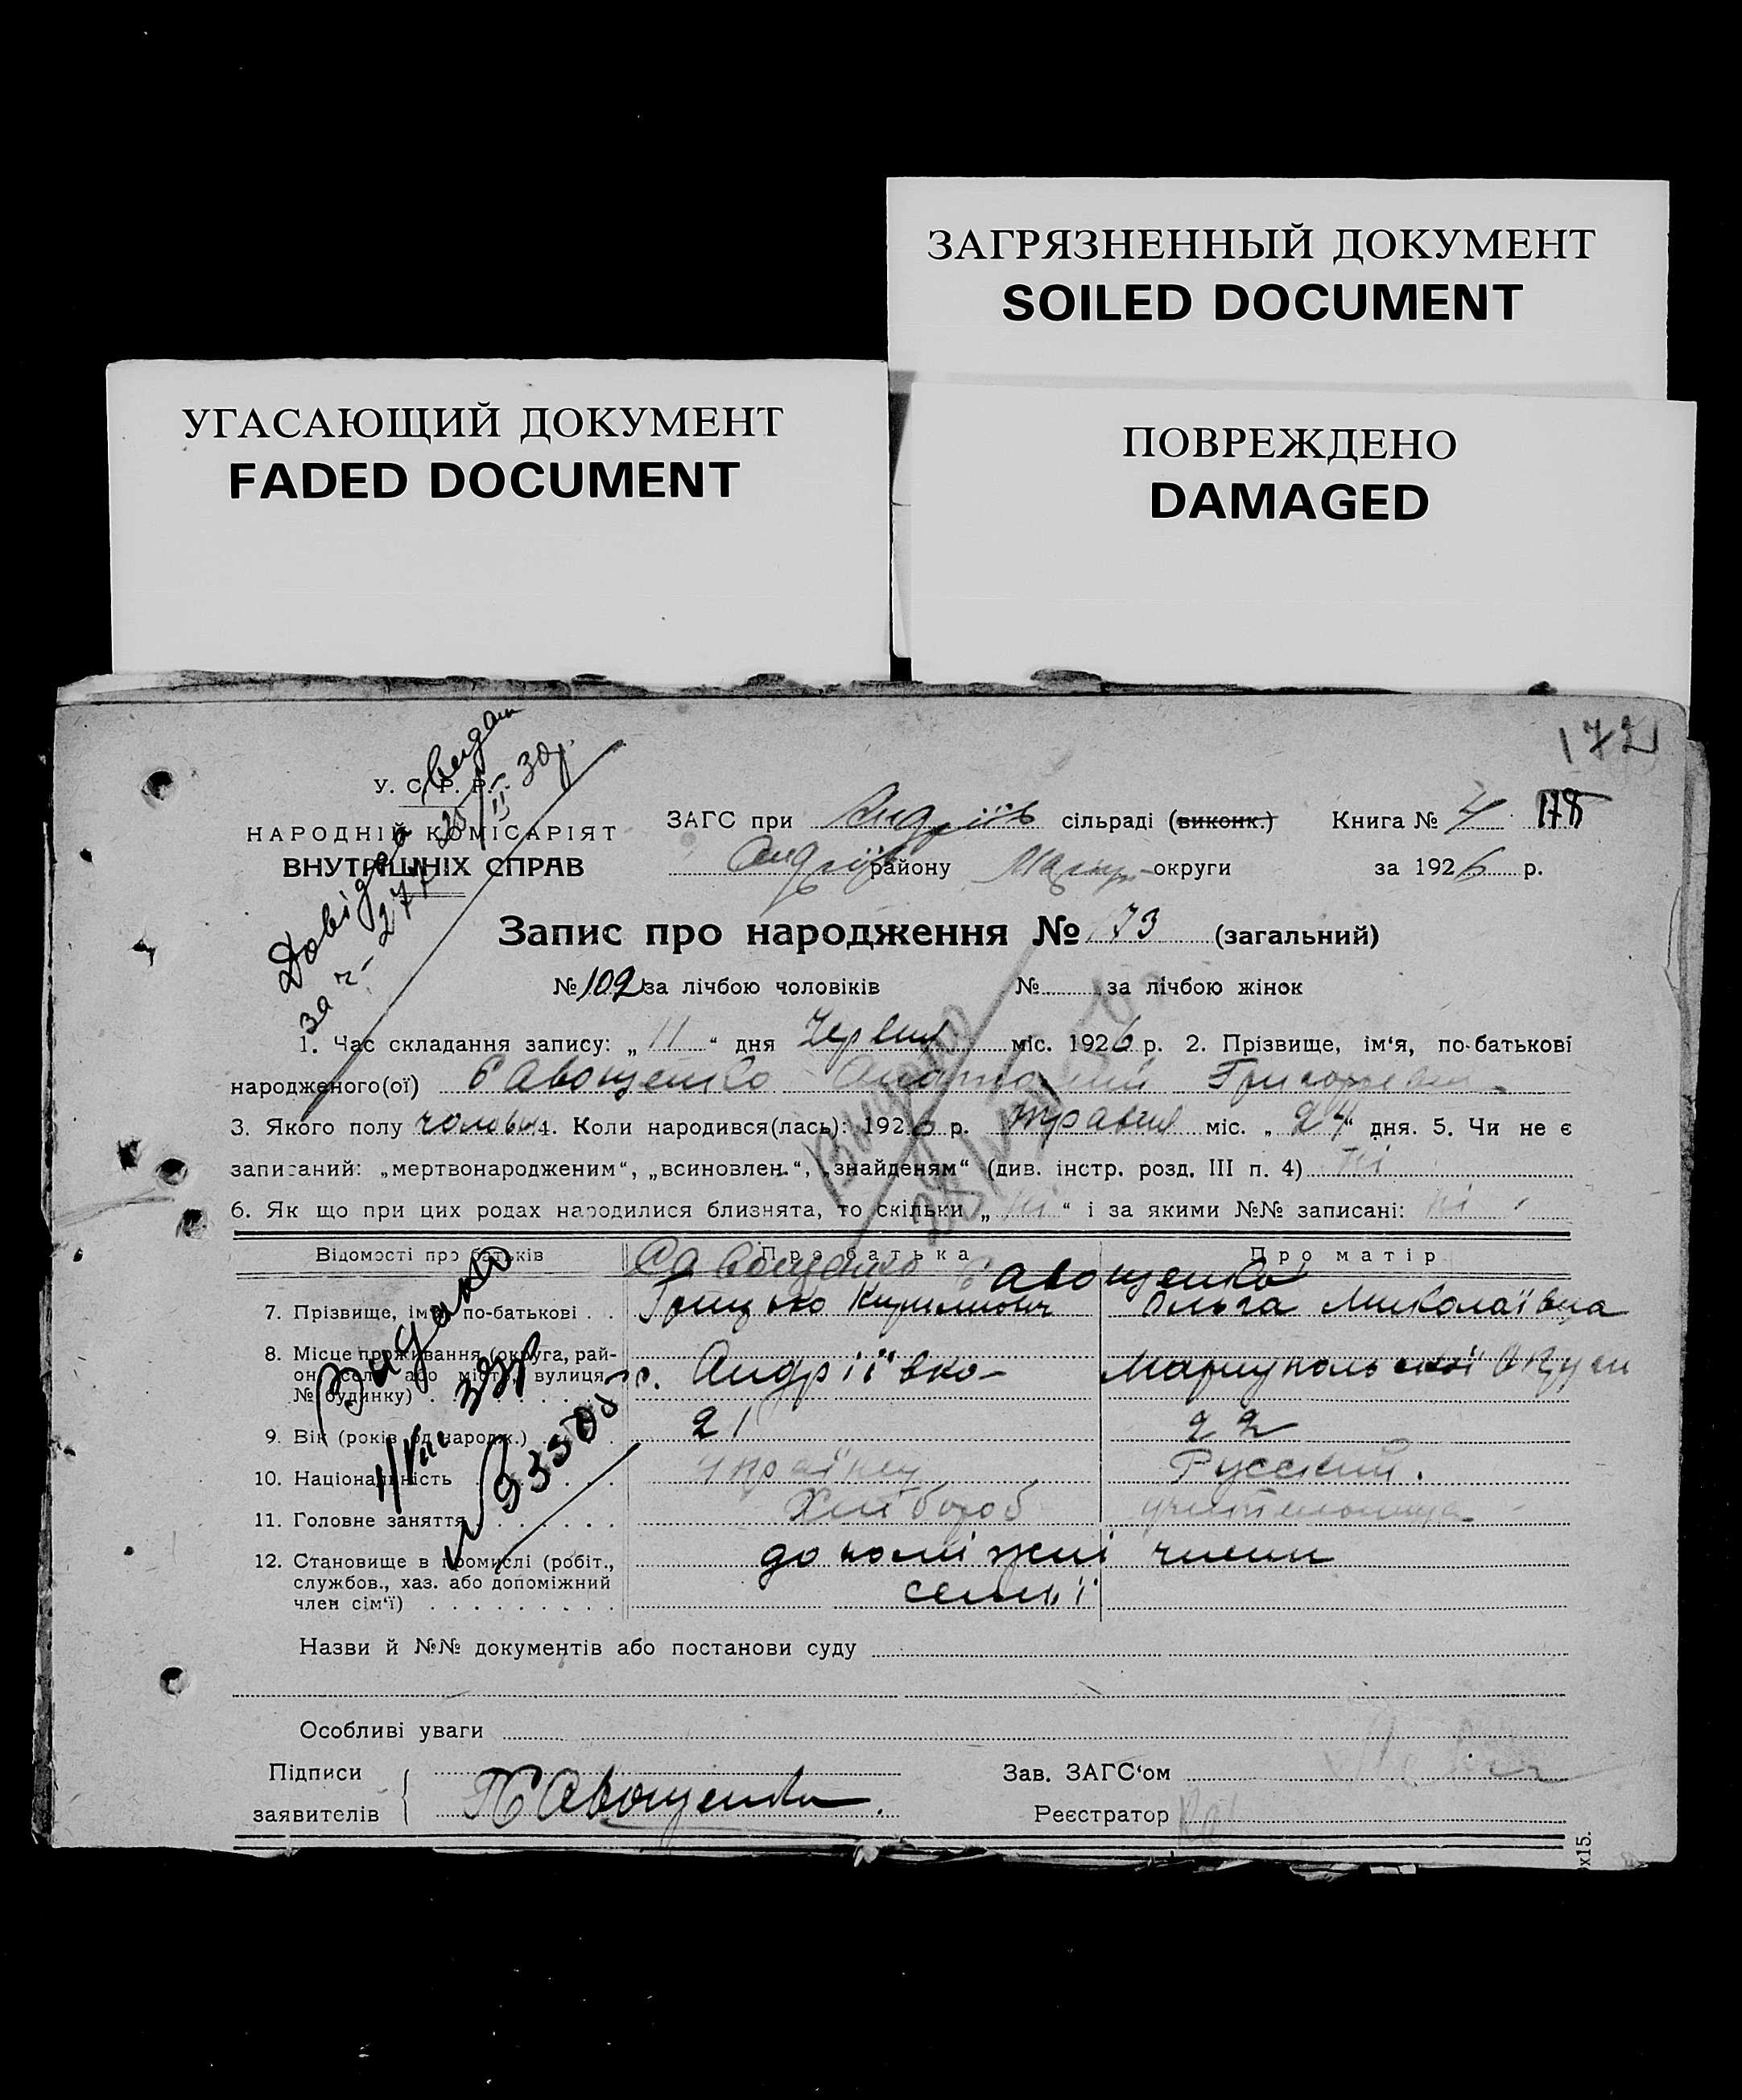 ЗАГРЯЗНЕННЫЙ ДОКУМЕНТ
SOILED DOCUMENT
УГАСАЮЩИЙ ДОКУМЕНТ
FADED DOCUMENT
ПОВРЕЖДЕНО
DAMAGED
172
У. С. Р. Р.
НАРОДНІЙ КОМІСАРІЯТ
ВНУТРІШНІХ СПРАВ
ЗАГС при Андріїв сільраді (виконк.) Книга № 4 178
Андріїв району Маріуп. округи за 1926 р.
Запис про народження № 173 (загальний)
№ 102 за лічбою чоловіків № за лічбою жінок
1. Час складання запису: „ 11 “ дня Червня міс. 1926 р. 2. Прізвище, ім‘я, по-батькові
народженого(ої) Савощенко Анатолій Григорієвич
3. Якого полу чоловіч 4. Коли народився(лась): 1926 р. травня міс. „ 24 “ дня. 5. Чи не є
записаний: „мертвонародженим“, „всиновлен.“, „знайденям“ (див. інстр. розд. III п. 4) ні
6. Як що при цих родах народилися близнята, то скільки „ ні “ і за якими №№ записані: ні
Відомості про батьків Про батька Про матір
Савощенко Савощенко
7. Прізвище, ім‘я, по-батькові . . Грицько Кирилович Ольга Миколаївна
8. Місце проживання (округа, рай-
он, село або місто, вулиця,
№ будинку) с. Андріївка Маріупольської округи
9. Вік (років од народж.) 21 22
10. Національність українец Русский.
11. Головне заняття Хлібороб учительница
12. Становище в промислі (робіт.,
службов., хаз. або допоміжний
член сім‘ї) допоміжні члени
семьї
Назви й №№ документів або постанови суду
Особливі уваги
Підписи
заявителів Савощенко
Зав. ЗАГС‘ом
Реєстратор
Довідка видан
за ч. 271
Видано
Видано
х15.